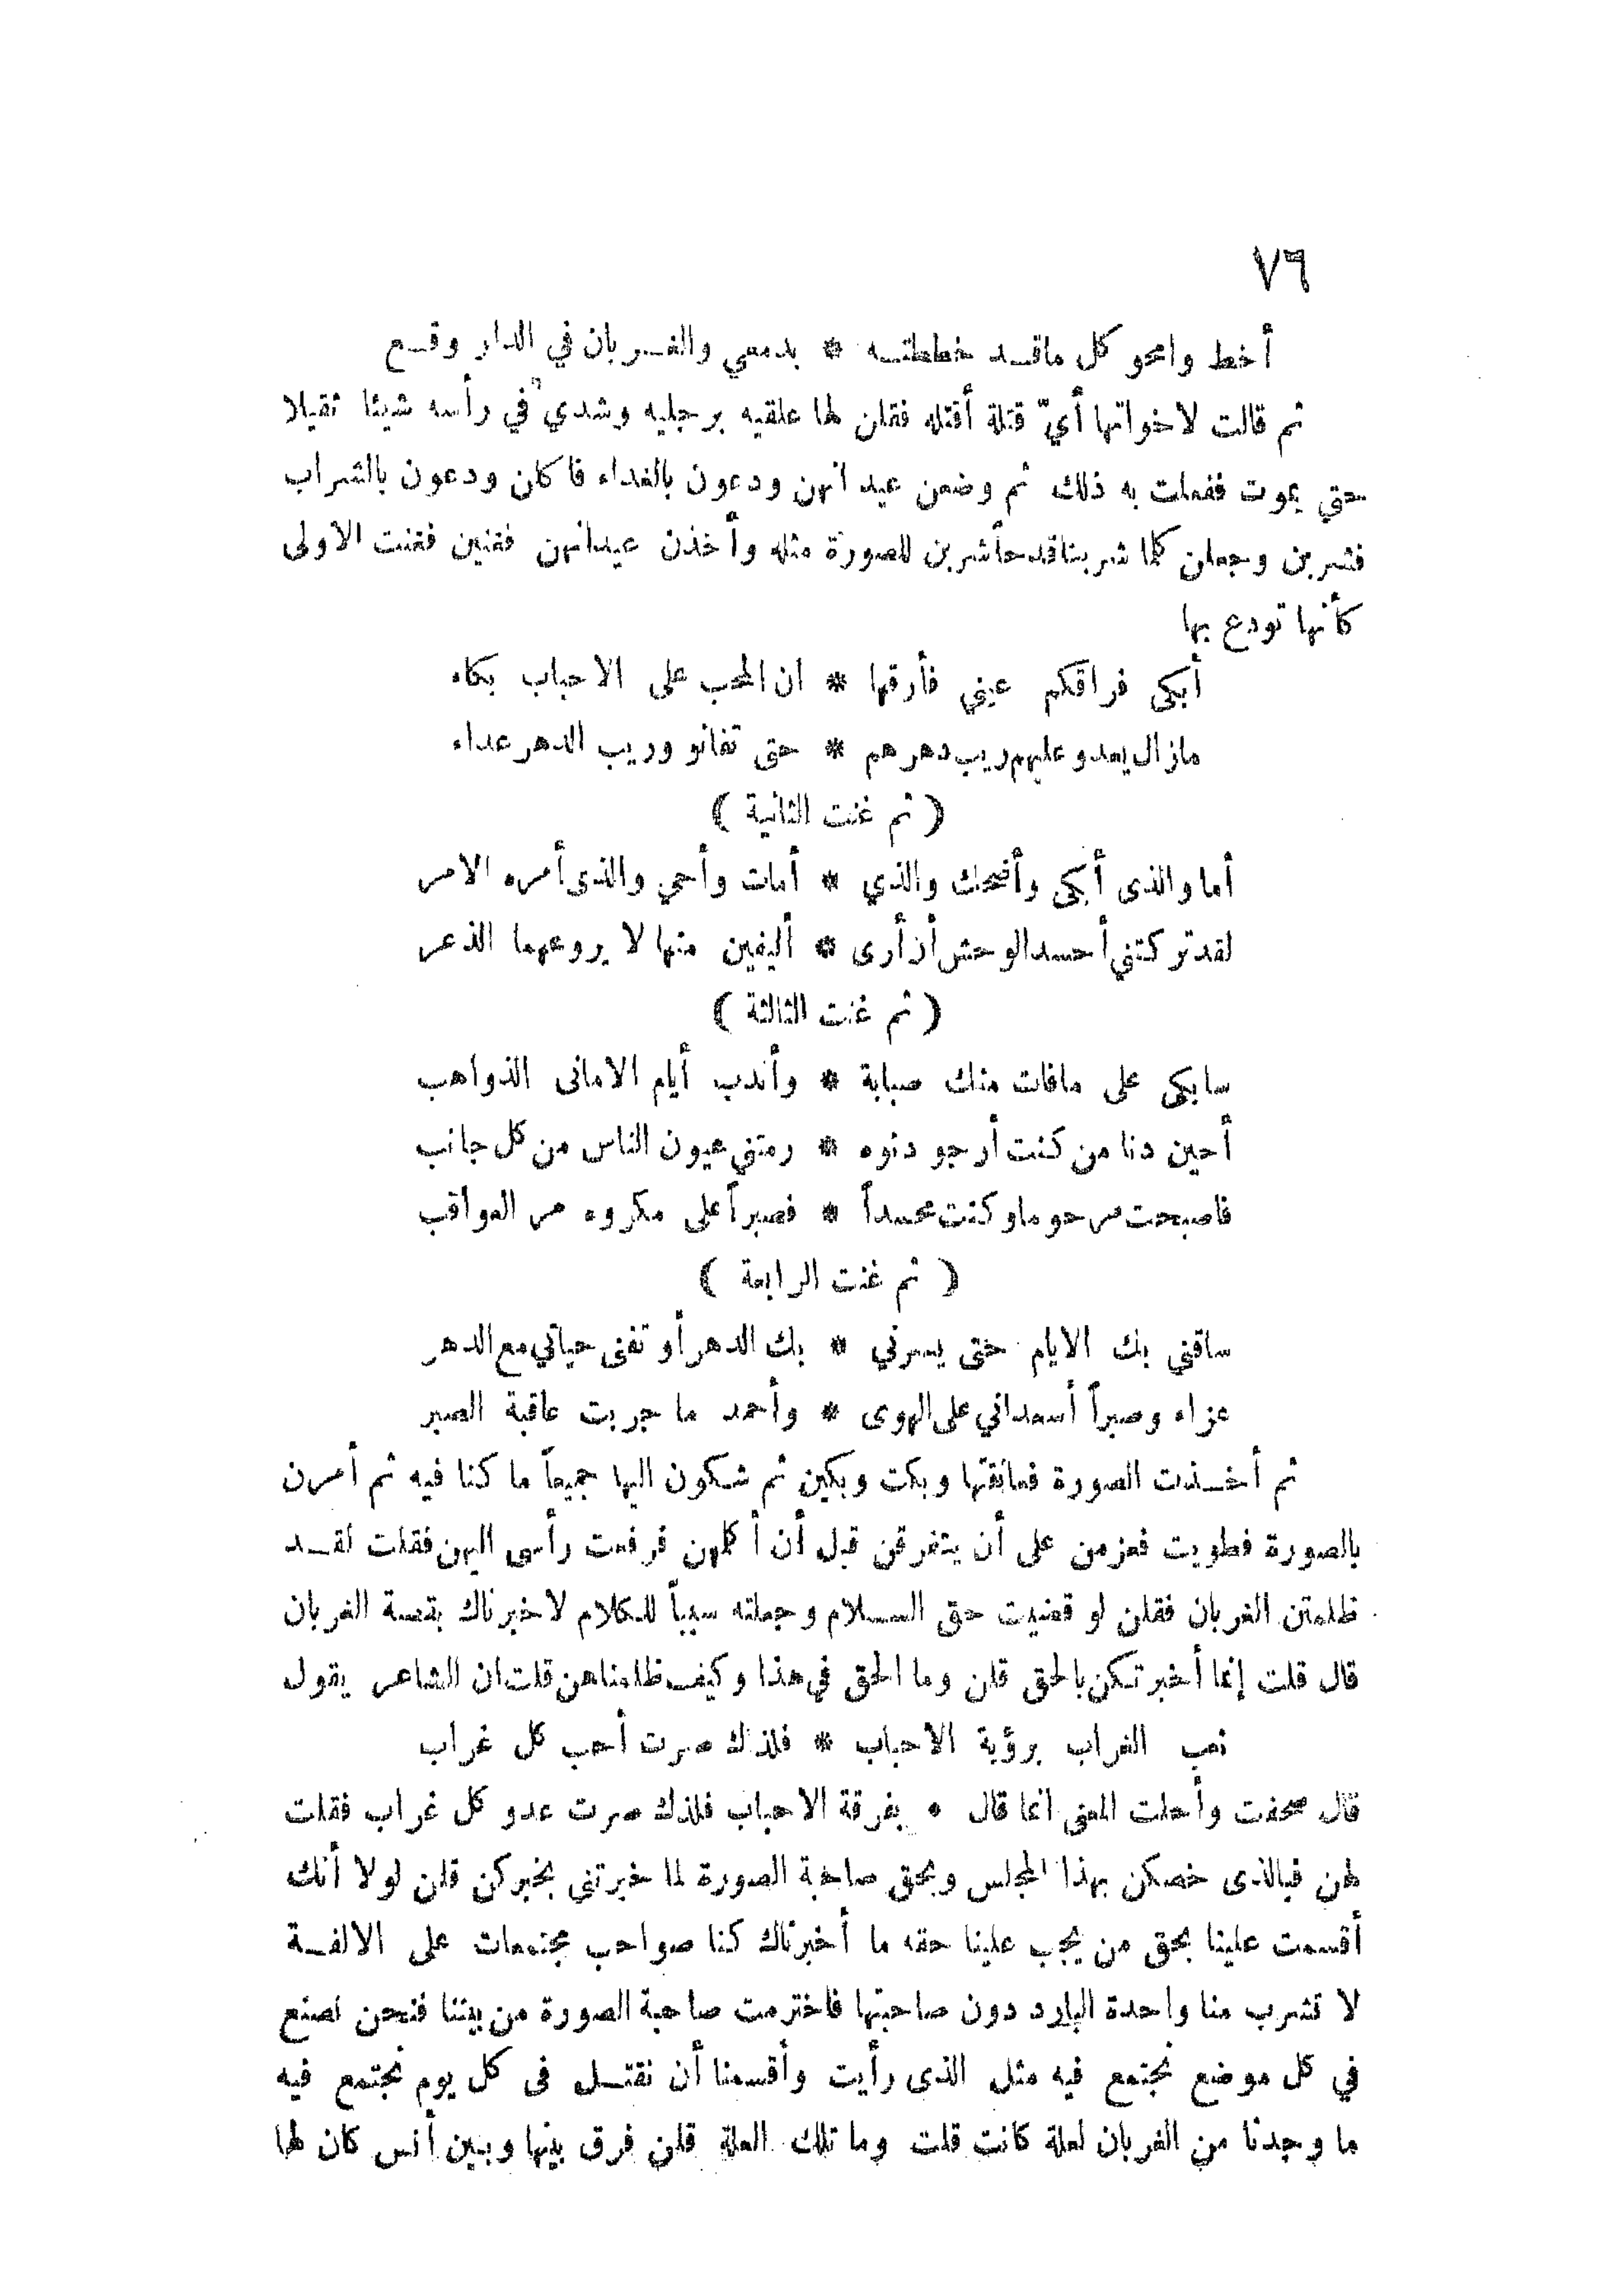 ٧٦
أخط وامحو كل ماقد خططته * بدمعي والغربان في الدار وقع
ثم قالت لاخواتها أيّ قتلة أقتله فقلن لها علقيه برجليه وشدي في رأسه شيئا ثقيلا
حتي يموت ففعلت به ذلك ثم وضعن عيدانهن ودعون بالغداء فاكلن ودعون بالشراب
فشربن وجعلن كلما شربنا قدحا شربن للصورة مثله وأخذن عيدانهن فغنين فغنت الاولى
كأنها تودع بها
أبكى فراقكم عيني فأرقها * ان المحب على الاحباب بكاء
مازال يعدو عليهم ريب دهرهم * حتى تفانو وريب الدهر عداء
( ثم غنت الثانية )
أما والذى أبكى وأضحك والذي * أمات وأحي والذى أمره الامر
لقد تركتني أحسد الوحش أن أرى * أليفين منها لا يروعهما الذعر
( ثم غنت الثالثة )
سابكى على مافات منك صبابة * وأندب أيام الامانى الذواهب
أحين دنا من كنت أرجو دنوه * رمتني عيون الناس من كل جانب
فاصبحت مرحوما وكنت محسداً * فصبراً على مكروه مر العواقب
( ثم غنت الرابعة )
سافني بك الايام حتى يسرني * بك الدهر أو تفنى حياتي مع الدهر
عزاء وصبراً أسعداني على الهوى * وأحمد ما جربت عاقبة الصبر
ثم أخذت الصورة فعانقتها وبكت وبكين ثم شكون اليها جميعاً ما كنا فيه ثم أمرن
بالصورة فطويت فعزمن على أن يتفرقن قبل أن أكلمهن فرفعت رأسى اليهن فقلت لقد
ظلمتن الغربان فقلن لو قضيت حق السلام وجعلته سبباً للكلام لاخبرناك بقصة الغربان
قال قلت إنما أخبرتكن بالحق قلن وما الحق في هذا وكيف ظلمناهن قلت ان الشاعر يقول
نعب الغراب برؤية الاحباب * فلذاك صرت أحب كل غراب
قال صحفت وأحلت المعنى انما قال • بفرقة الاحباب فلذاك صرت عدو كل غراب فقلت
لهن فبالذى خصكن بهذا المجلس وبحق صاحبة الصورة لما خبرتني بخبركن قلن لولا أنك
أقسمت علينا بحق من يجب علينا حقه ما أخبرناك كنا صواحب مجتمعات على الالفة
لا تشرب منا واحدة البارد دون صاحبتها فاخترمت صاحبة الصورة من بيننا فنحن نصنع
في كل موضع نجتمع فيه مثل الذى رأيت وأقسمنا أن نقتل فى كل يوم نجتمع فيه
ما وجدنا من الغربان لعلة كانت قلت وما تلك العلة قلن فرق بينها وبين أنس كان لها